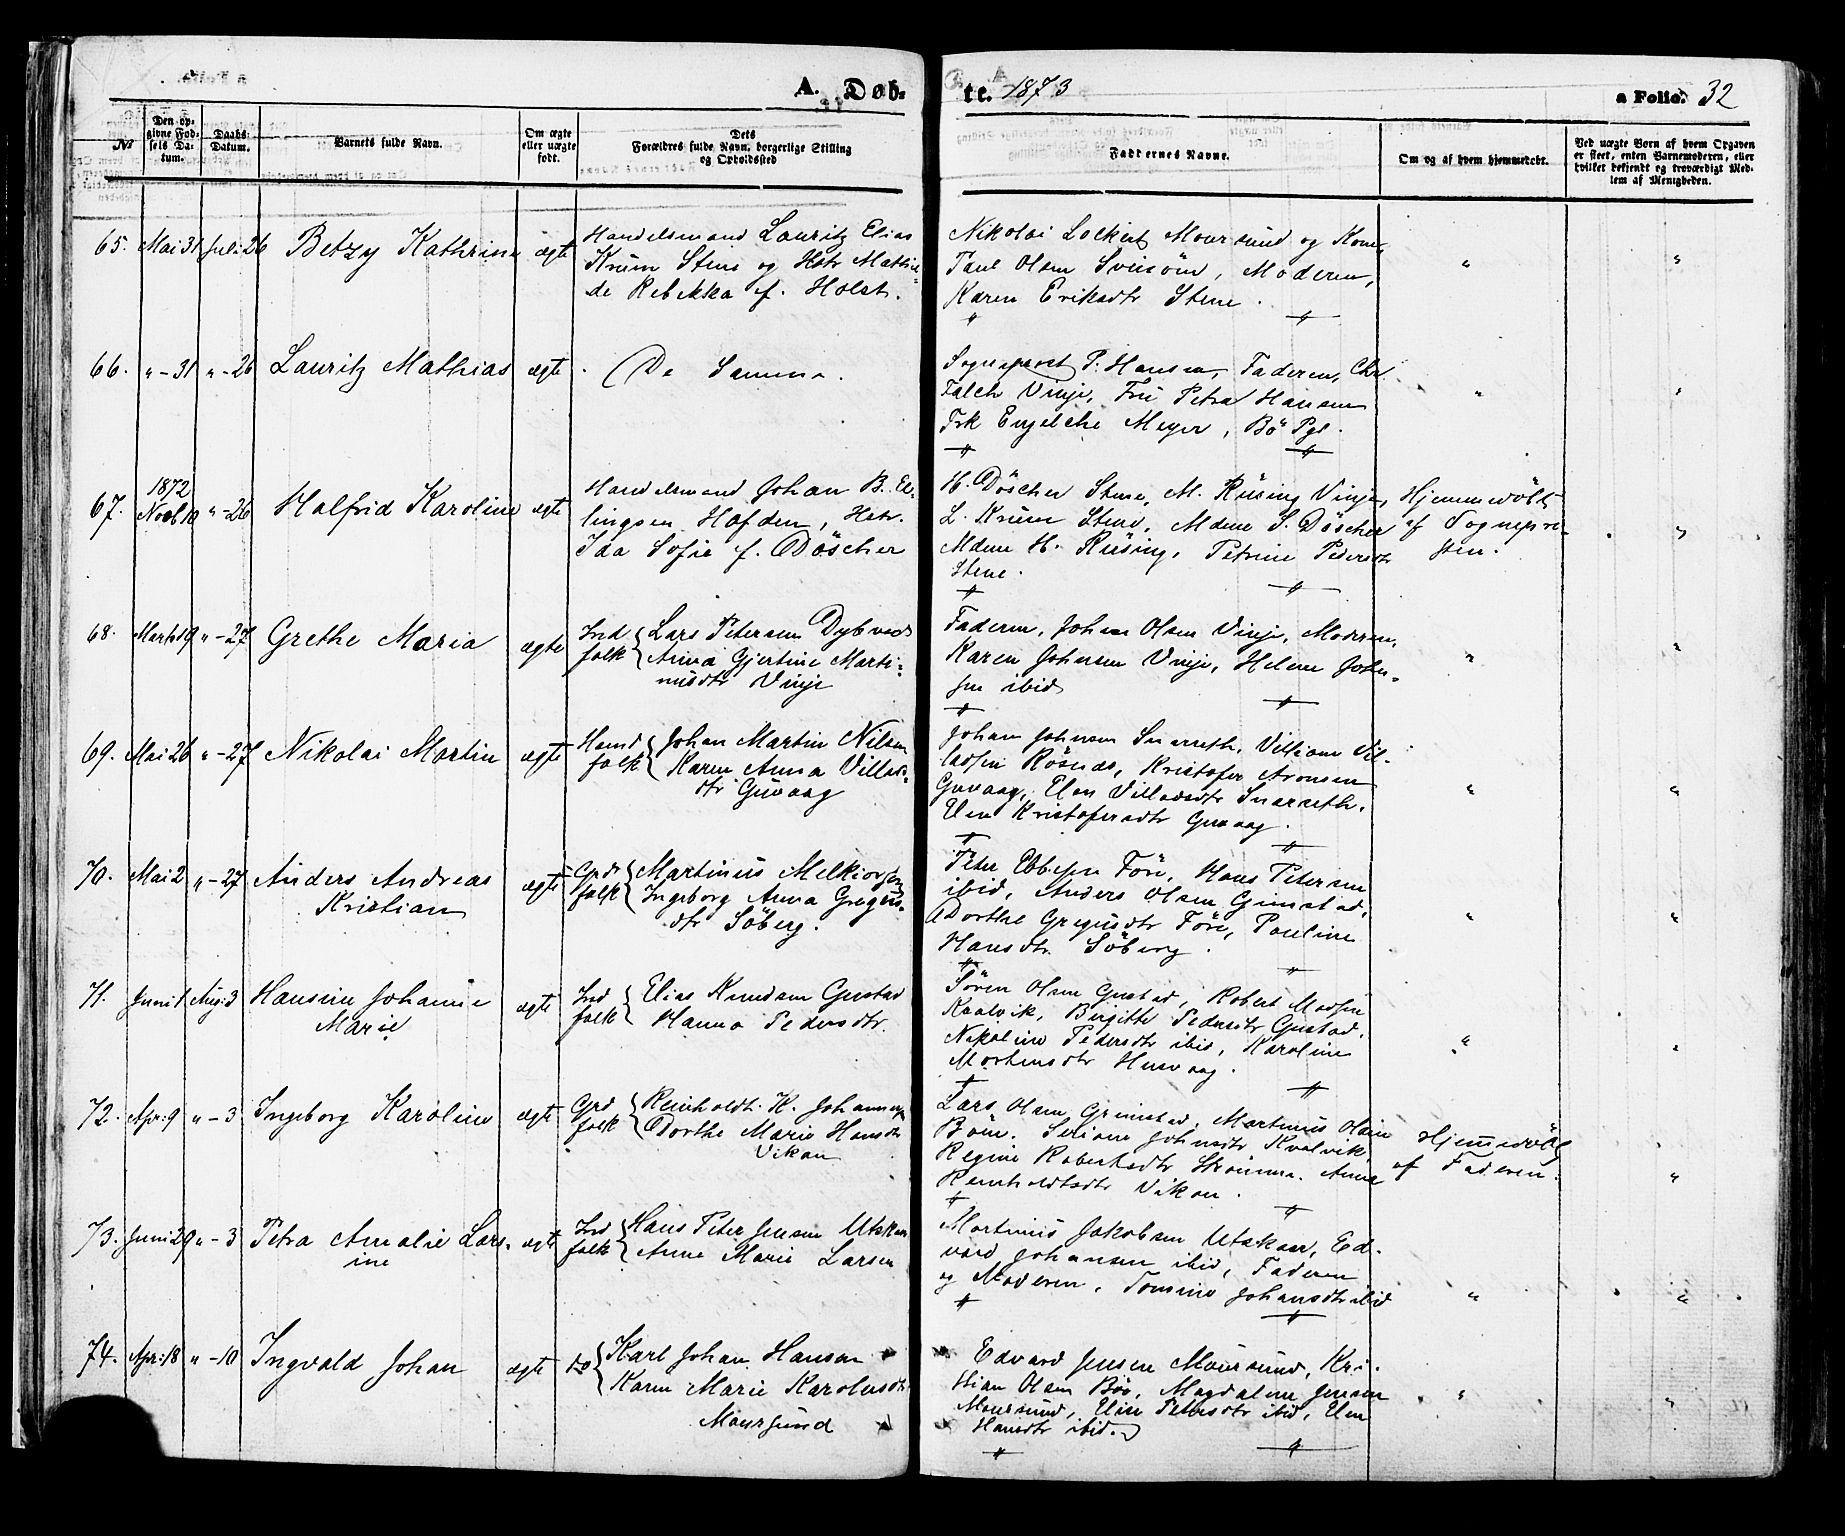 A. Døb-
te. 1873
a Folio. 32
№
Den op-
givne Fød-
sels Da-
tum.
Daabs
Datum.
Barnets fulde Navn.
Om ægte
eller uægte
født.
Dets
Forældres fulde Navn, borgerlige Stilling
og Opholdssted
Faddernes Navne.
Om og af hvem hjemmedøbt.
Ved uægte Børn af hvem Opgaven
er skeet, enten Barnemoderen, eller
hvilket bekjendt og troværdigt Med-
lem af Menigheden.
65. Mai 31 Juli 26 Betzy Kathrine ægte
Handelsmand Lauritz Elias
Krum Stene og Hstr Mathil-
de Rebekka f. Holst.
Nikolai Lockert Moursund og Kone,
Paul Olsen Svinöen, Moderen,
Karen Eriksdtr Stene.
66. " - 31 " - 26 Lauritz Mathias ægte
De Samme.
Sogneprest P. Hansen, Faderen, Chr.
Falch Vinje, Fru Petra Hansen
Frk Engelche Meyer, Bö Pgl.
67. 1872
Novb 10 " - 26 Halfrid Karoline ægte
Handelsmand Johan B. El-
lingsen Hofden, Hstr.
Ida Sofie f. Döscher
H. Döscher Stene, M. Rüsing Vinje,
L. Krum Stene, Mdme S. Döscher
Mdme H. Rüsing, Petrine Pedersdtr
Stene.
Hjemmedöbt
af Sognepre-
sten.
68. Marts 19 " - 27 Grethe Maria ægte
Ind
folk
Lars Petersen Dybvad
Anna Gjertine Marti-
nusdtr Vinje
Faderen, Johan Olsen Vinje, Moderen,
Karen Johnsen Vinje, Helene John-
sen ibid
69. Mai 26 " - 27 Nikolai Martin ægte
Hmd
folk
Johan Martin Nilsen
Karen Anna Villads-
dtr Guvaag
Johan Johnsen Snarseth, Villiam Vil-
ladsen Rösnes, Kristofer Aronsen
Guvaag, Elen Villadsdtr Snarseth,
Elen Kristofersdtr Guvaag.
70. Mai 2 " - 27 Anders Andreas
Kristian
ægte
Grd
folk
Martinus Melkiorsen
Ingeborg Anna Gregus-
dtr Söberg.
Peter Ebbesen Före, Hans Petersen
ibid, Anders Olsen Grimstad,
Dorthe Gregusdtr Före, Pauline
Hansdtr Söberg.
71. Juni 1 Aug: 3 Hansine Johanne
Marie
ægte
Ind
folk
Elias Knudsen Gustad
Hanna Pedersdtr.
Sören Olsen Gustad, Robert Madsen
Kvalvik, Birgitte Pedersdtr Gustad,
Nikoline Pedersdtr ibid, Karoline
Mortensdtr Husvaag.
72. Apr: 9 " - 3 Ingeborg Karoline ægte
Grd
folk
Reinholdt K. Johannesen
Dorthe Marie Hansdtr
Vikan
Lars Olsen Grimstad, Martinus Olsen
Böen. Johnsdtr Kvalvik,
Regine Robertsdtr Anne
Reinholdtsdtr Vikan.
Hjemedöbt
af Faderen.
73. Juni 29 " - 3 Petra Amalie Lars-
ine
ægte
Ind
folk
Hans Peter Jensen Utskar
Anne Marie Larsen
Martinus Jakobsen Utskar, Ed-
vard Johansen ibid, Faderen
og Moderen, Tomine Johansdtr ibid
74. Apr: 18 " - 10 Ingvald Johan ægte
do
Karl Johan Hansen
Karen Marie Karolusdtr
Moursund
Edvard Jensen Moursund, Kri-
stian Olsen Böe, Magdalene Jensen
Moursund, Elen Petersdtr ibid, Elen
Hansdtr ibid.